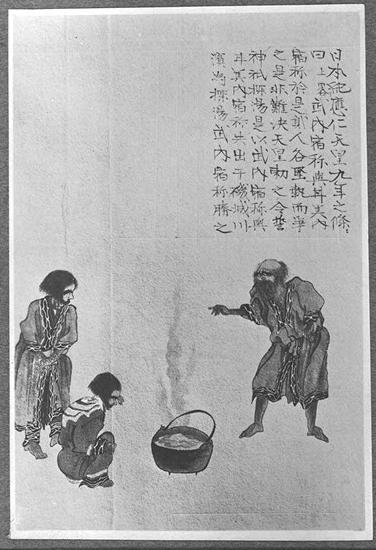 日本紀應仁天皇九年之條
曰上畧武内宿祢與甘美内
宿祢於是二人各堅執而爭
之是非難決天皇勅之令請
神祇探湯是以武内宿祢與
甘美内宿祢共出于磯城川
濱為探湯武内宿祢勝之